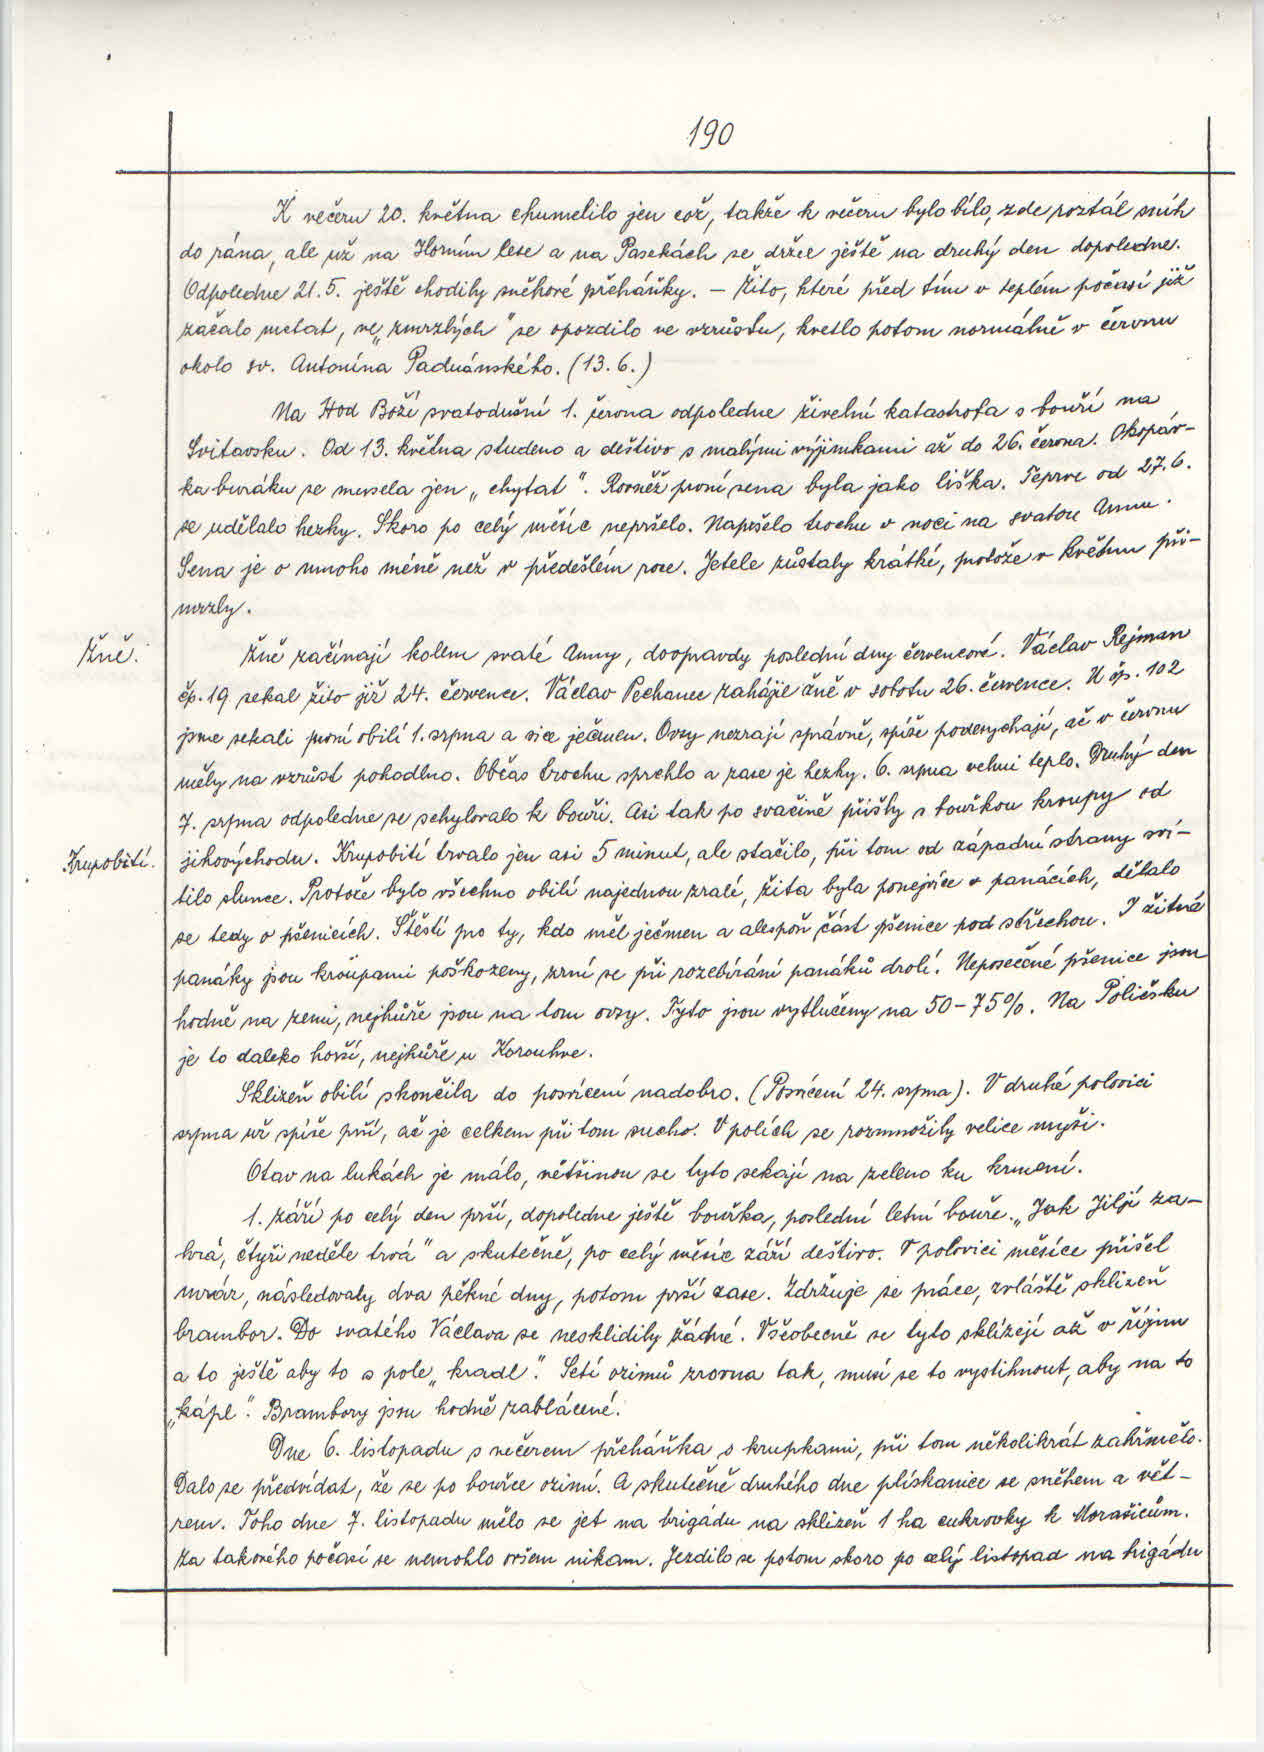 190
K večeru 20. května chumelilo jen což, takže k večeru bylo bílo, zde roztál sníh
do rána, ale už na Horním lese a na Pasekách se držel ještě na druhý den dopoledne.
Odpoledne 21.5. ještě chodily sněhové přeháňky. – Žito, které před tím v teplém počasí již
začalo metat, ve „zmrzlých" se opozdilo ve vzrůstu, kvetlo potom normálně v červnu
okolo sv. Antonína Paduánského. (13.6.)
Na Hod Boží svatodušní 1. června odpoledne živelní katastrofa s bouří na
Svitavsku. Od 13. května studeno a deštivo s malými výjimkami až do 26. června. Okopáv-
ka buráku se musela jen „chytat". Rovněž první sena byla jako liška. Teprve od 27.6.
se udělalo hezky. Skoro po celý měsíc nepršelo. Napršelo trochu v noci na svatou Annu.
Sena je o mnoho méně než v předešlém roce. Jetele zůstaly krátké, protože v květnu při-
mrzly.
Žně.
Žně začínají kolem svaté Anny, doopravdy poslední dny červencové. Václav Rejman
čp. 19 sekal žito již 24. července. Václav Pechanec zahájil žně v sobotu 26. července. U čp. 102
jsme sekali první obilí 1. srpna a sice ječmen. Ovsy nezrají správně, spíše podesychají, ač v červnu
měly na vzrůst pohodlno. Občas trochu sprchlo a zase je hezky. 6. srpna velmi teplo. Druhý den
7. srpna odpoledne se schylovalo k bouři. Asi tak po svačině přišly s bouřkou kroupy od
Krupobití.
jihovýchodu. Krupobití trvalo jen asi 5 minut, ale stačilo, při tom od západní strany sví-
tilo slunce. Protože bylo všechno obilí najednou zralé, žita byla ponejvíce v panácích, dělalo
se tedy o pšenicích. Štěstí pro ty, kdo měl ječmen a alespoň část pšenice pod střechou. I žitné
panáky jsou kroupami poškozeny, zrní se při rozebírání panáků drolí. Neposečené pšenice jsou
hodně na zemi, nejhůře jsou na tom ovsy. Tyto jsou vytlučeny na 50–75%. Na Poličsku
je to daleko horší, nejhůře u Korouhve.
Sklizeň obilí skončila do posvícení nadobro. (Posvícení 24. srpna). V druhé polovici
srpna už spíše prší, ač je celkem při tom sucho. V polích se rozmnožily velice myši.
Otav na lukách je málo, většinou se tyto sekají na zeleno ku krmení.
1. září po celý den prší, dopoledne ještě bouřka, poslední letní bouře. „Jak Jiljí za-
hrá, čtyři neděle trvá" a skutečně, po celý měsíc září deštivo. V polovici měsíce přišel
mráz, následovaly dva pěkné dny, potom prší zase. Zdržuje se práce, zvláště sklizeň
brambor. Do svatého Václava se nesklidily žádné. Všeobecně se tyto sklízejí až v říjnu
a to ještě aby to s pole „kradl". Setí ozimů zrovna tak, musí se to vystihnout, aby na to
„kápl". Brambory jsou hodně zablácené.
Dne 6. listopadu s večerem přeháňka s krupkami, při tom několikrát zahřmělo.
Dalo se předvídat, že se po bouřce ozimí. A skutečně druhého dne plískanice se sněhem a vět-
rem. Toho dne 7. listopadu mělo se jet na brigádu na sklizeň 1 ha cukrovky k Morašicům.
Za takového počasí se nemohlo ovšem nikam. Jezdilo se potom skoro po celý listopad na brigádu